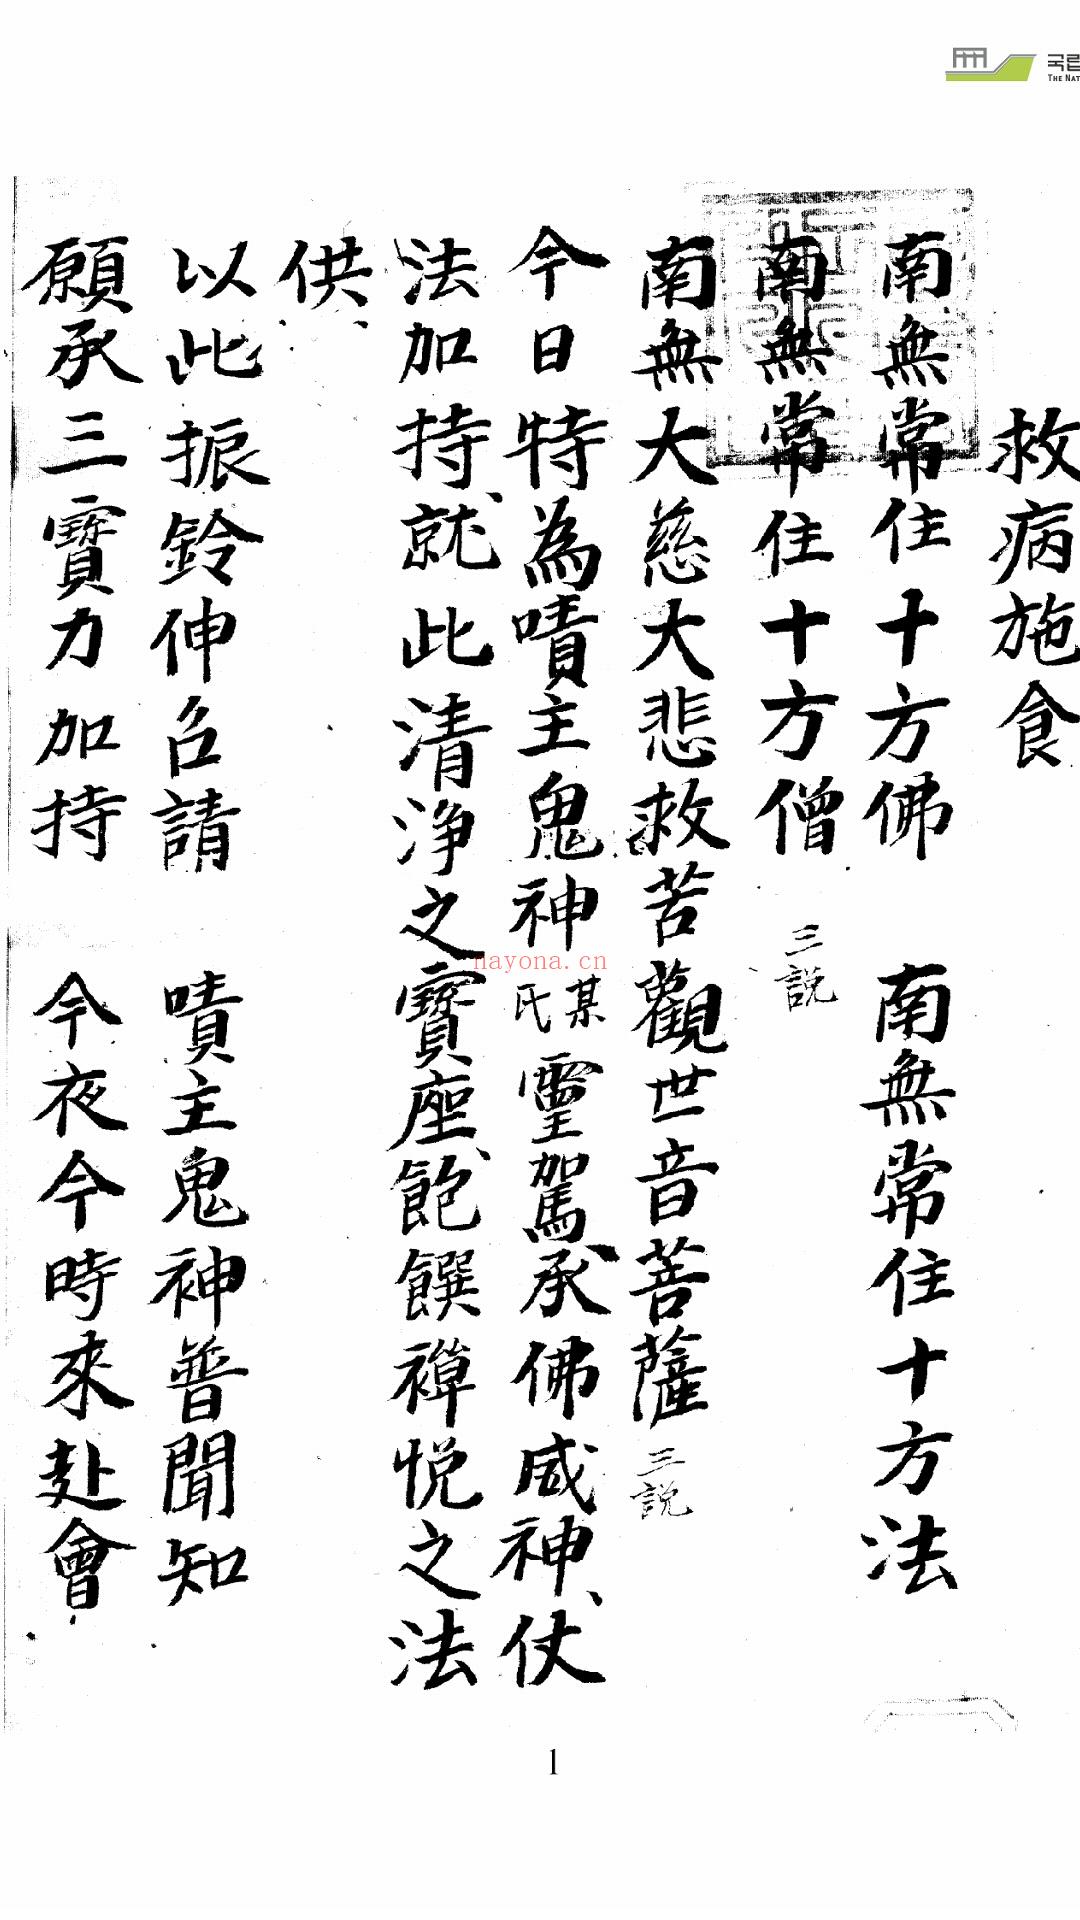 국립
THE NAT
救病施食
南無常住十方佛 南無常住十方法
南無常住十方僧 三說
南無大慈大悲救苦觀世音菩薩 三說
今日特為嘖主鬼神 某氏 靈駕承佛威神、仗
法加持、就此清淨之寶座、飽饌禪悅之法
供、
以此振鈴伸召請 嘖主鬼神普聞知
願承三寶力加持 今夜今時來赴會
nayona.cn
1